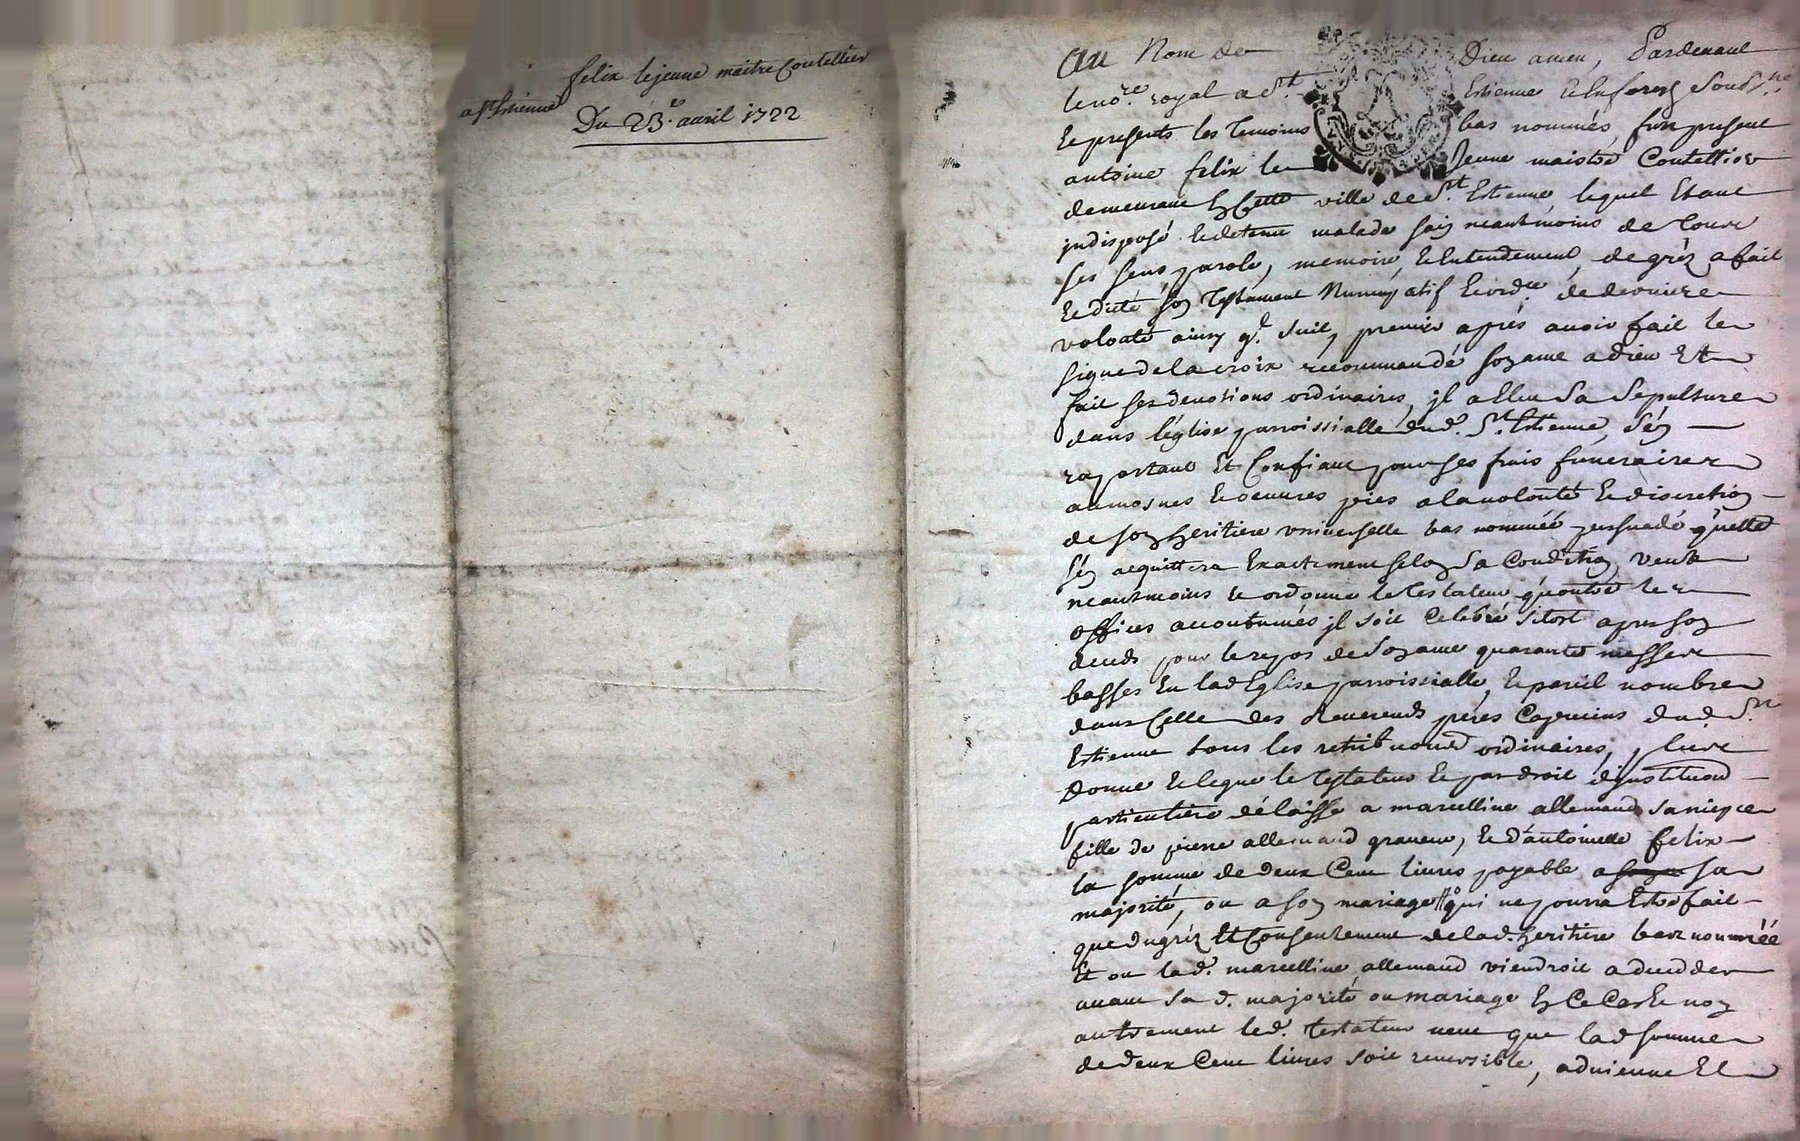 felix lejeune maitre Coutellier
a st Estienne
Du 23e. auril 1722
Au Nom de Dieu amen, Pardeuant
le nore. royal a St. Estienne En forez soubsne.
Et presents les temoins bas nommés, fust present
antoine felix le Jeune maistre Coutellier
demeurant En Cette ville de St. Estienne, lequel Estant
jndisposé Et detenu malade sain neantmoins de tous
ses sens, parole, memoire, Et Entendement, de grez a fait
Et dicté son Testament Nuncupatif Et ordre. de derniere
volonté ainsy q. suit, premier aprés auoir fait le
signe de la croix recommandé son ame a dieu Et
fait ses deuotions ordinaires, jl a Eleu Sa Sepulture
dans l'église parroissialle dud. St. Estienne, S'en
raportant Et Confiant pour ses frais funeraires
aumosnes Et oeuures pies a la volonté Et discretion
de son heritiere vniuerselle bas nommée persuadé qu'elle
s'en acquittera Exactement selon Sa Condition, veut
neantmoins Et ordonne le Testateur qu'outre les
offices accoutumés jl soit Celebré sitost apres son
deceds pour le repos de Son ame quarante messes
basses En lad Eglise parroissialle, Et pareil nombre
dans Celle des Reuerends peres Capucins dud. St.
Estienne sous les retribuons ordinaires, plus
Donne Et legue le Testateur Et par droit d'jnstitution
particuliere délaisse a marcelline allemand sa niepce
fille de pierre allemand graueur, Et d'antoinette felix
la somme de deux Cent liures payable a sa
majorité, ou a son mariage qui ne pourra Estre fait
que du gréz Et Consentement de lad. heritiere bas nommée
Et ou lad. marcelline allemand viendroit a decedder
auant Sa d. majorité ou mariage En Ce Cas Et non
autrement led. testateur veut que lad somme
de deux Cent liures soit reuersible, aduienne Et